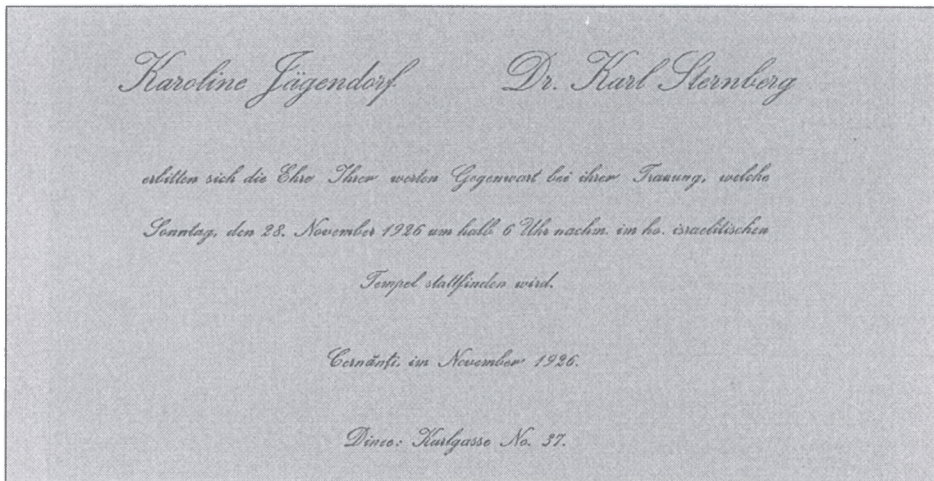 Karoline Jägendorf Dr. Karl Sternberg
erbitten sich die Ehre Ihrer werten Gegenwart bei ihrer Trauung, welche
Sonntag, den 28. November 1926 um halb 6 Uhr nachm. im ho. israelitischen
Tempel stattfinden wird.
Cernăuți, im November 1926.
Diner: Karlgasse No. 37.